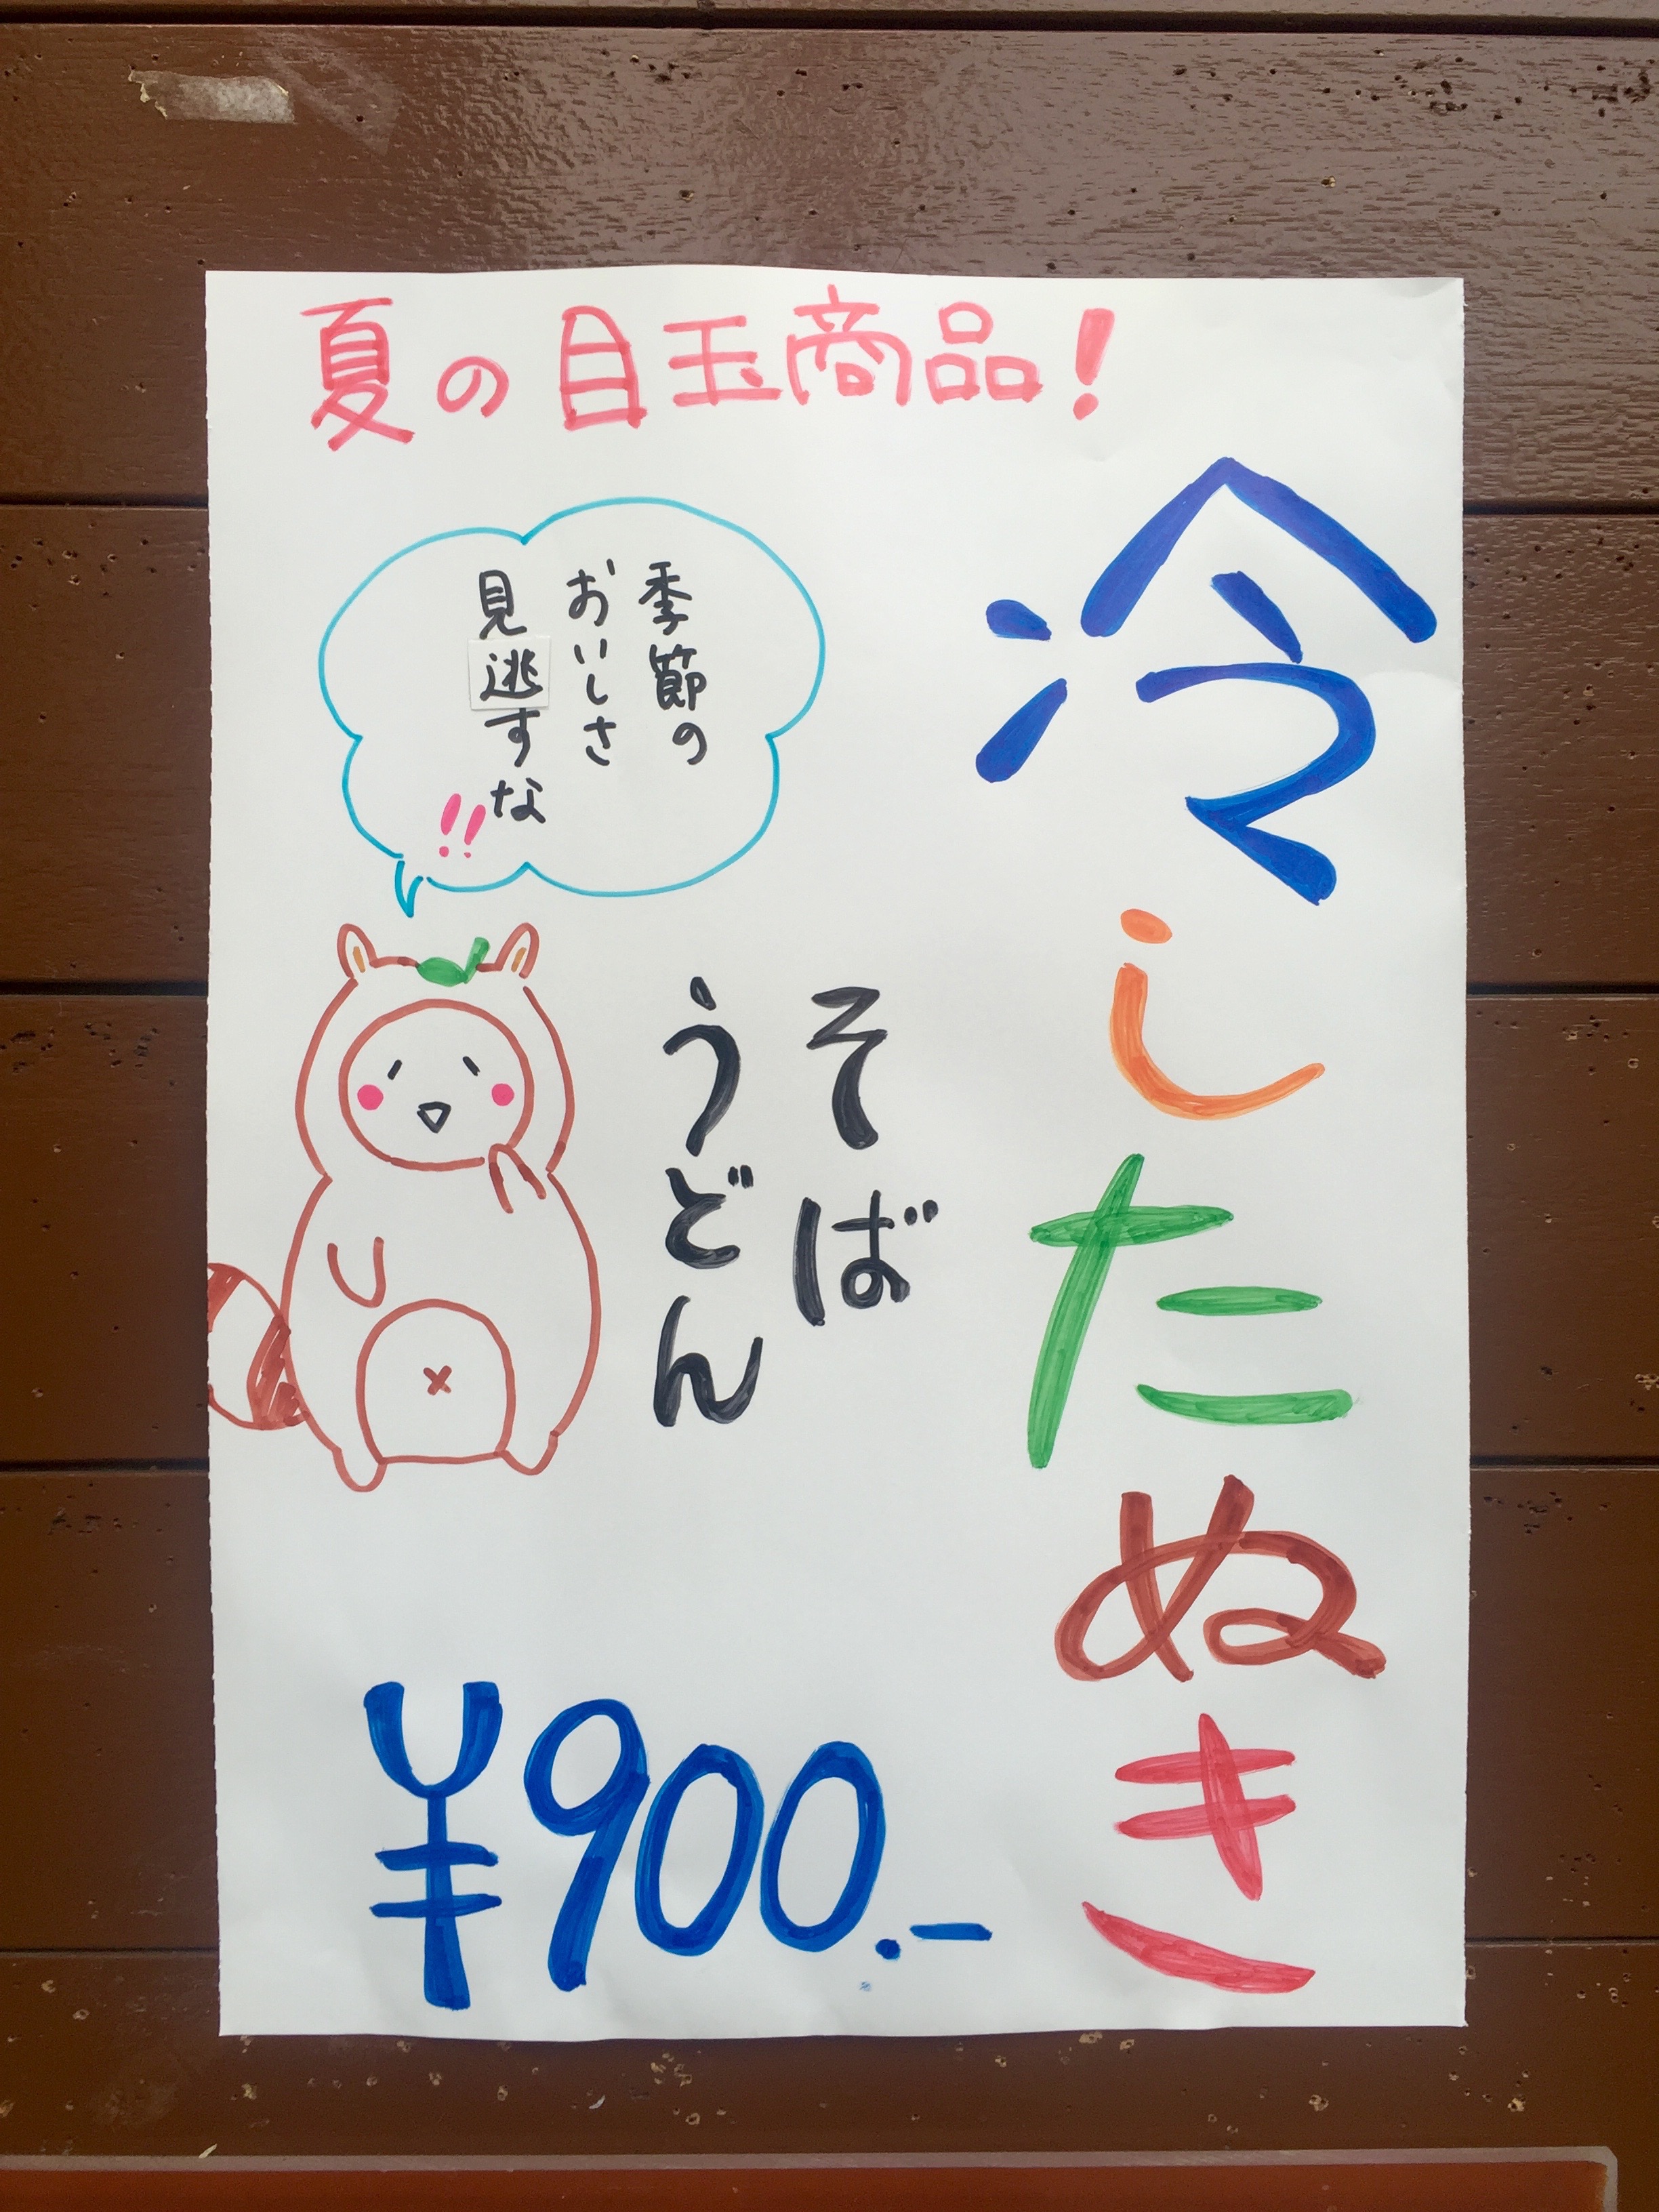 夏の目玉商品!
冷したぬき
季節の
おいしさ
見逃すな!!
そば
うどん
¥900.-